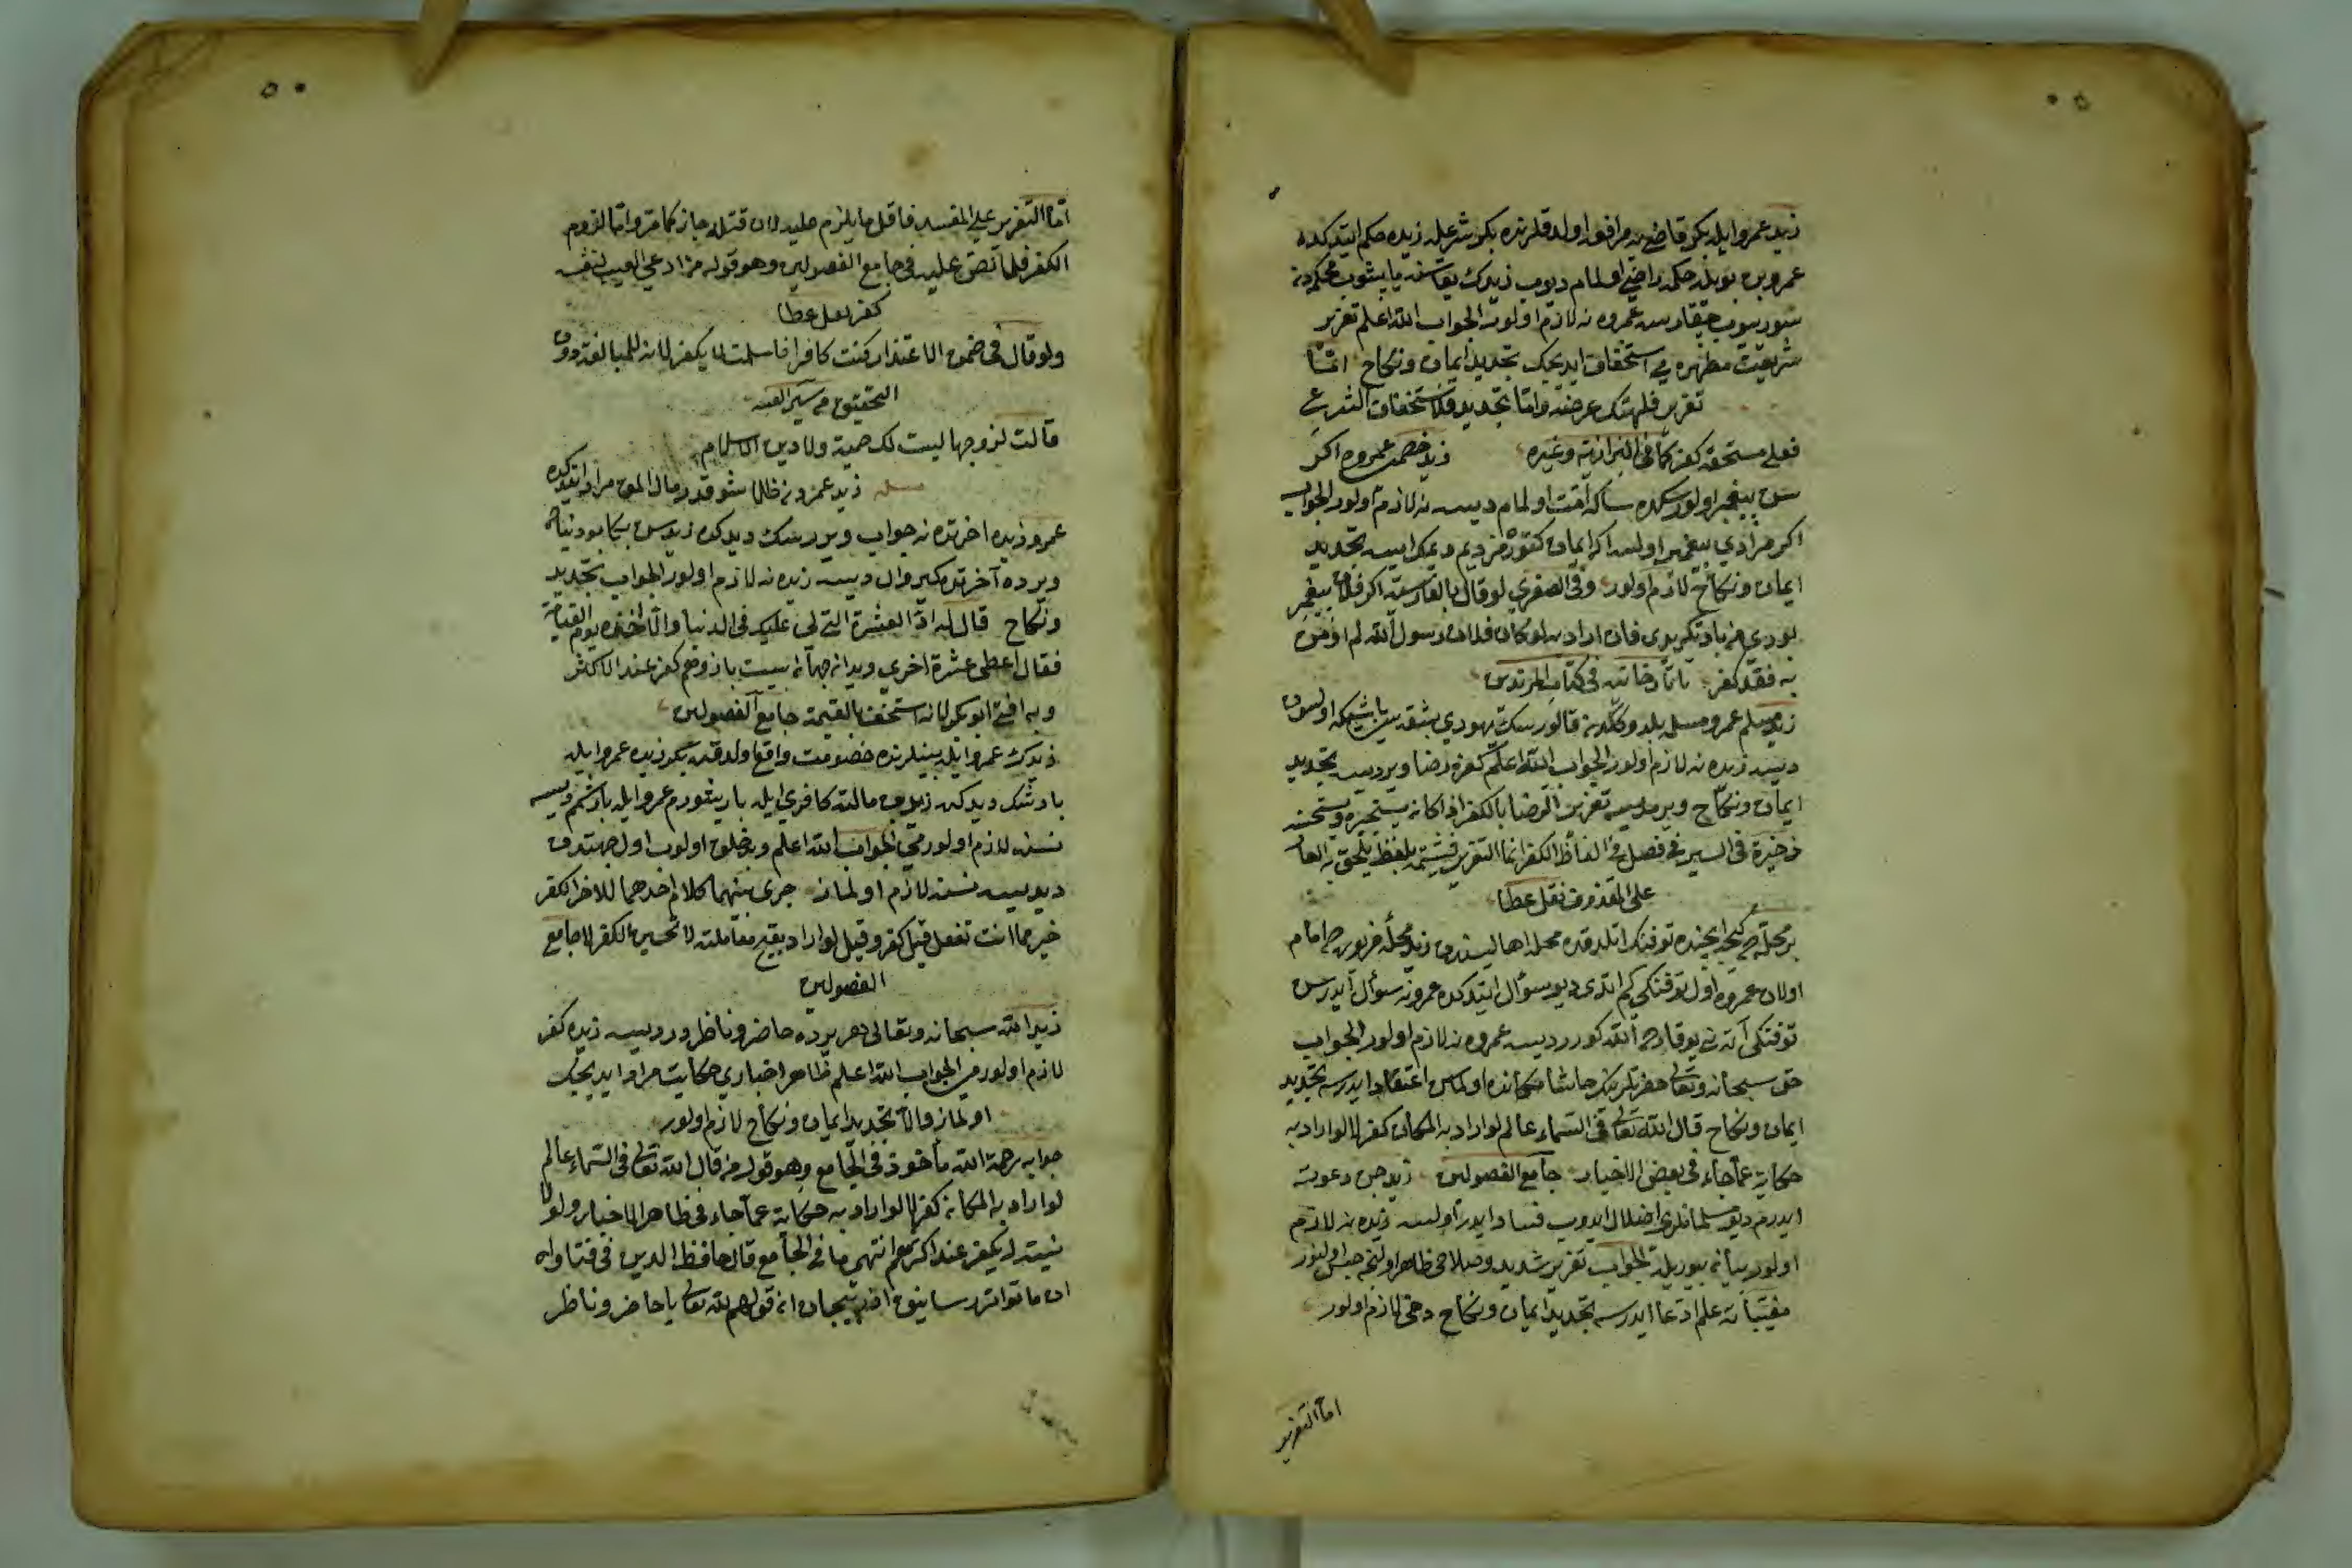 زيد عمرو ايله بكر قاضی يه مرافعه اولدقلرنده بكر شرعله زيده حكم ايتدكده
عمرو بن بويله حكمه راضی اولمام ديوب زيدك يقاسنه ياپشوب محكمه دن
سوريوب چيقارسه عمروه نه لازم اولور الجواب الله اعلم تعزير
شريعت مطهره يی استخفاف ايديجك تجديد ايمان ونكاح امّا
تعزير فلهتك عرضه وامّا تجديد فلاستخفاف الشرع
فعلی مستحقه كفر كما فی البزازيه وغيره زيد خصمی عمروه اكر
سن پيغمبر اولورسك ده سكا امّت اولمام ديسه نه لازم اولور الجواب
اكر مرادی پيغمبر اولسه اكر ايمان كتورمزديم ديمك ايسه تجديد
ايمان ونكاح لازم اولور وفی الصغری لو قال بالفارسيه اكر فلان پيغمبر
بودی من باو نكرويدی فان اراد به لو كان فلان رسول الله لم اومن
به فقد كفر تاتارخانيه فی كتاب المرتدين
زيد مسلم عمرو مسلم ايله
ديسه زيده نه لازم اولور الجواب الله اعلم كفره رضا ويرديسه تجديد
ايمان ونكاح ويرمديسه تعزير الرضا بالكفر اذا كان يستجيزه ويستحسنه
ذخيره فی السير فی فصل فی الفاظ الكفر انما التعزير فيشتمه بلفظ يلحق به العار
علی المقذوف نقل عطا
بر محله ده كيجه ايچنده توفنك اتلدقده محله اهاليسندن زيد محله مزبوره ده امام
اولان عمروه اول توفنكی كم اتدی ديو سؤال ايتدكده عمرو نه سؤال ايدرسن
توفنكی آتانی يوقاروده الله كورر ديسه عمروه نه لازم اولور الجواب
حق سبحانه وتعالی حضرتلرينك حاشا مكانده اولماسن اعتقاد ايدرسه تجديد
ايمان ونكاح قال الله تعالی فی السماء عالم لو اراد به المكان كفر لا لو اراد به
حكاية عما جاء فی بعض الاخبار جامع الفصولين زيد جن دعوت
ايدرم ديو مسلمانلری اضلال ايدوب فساد ايدر اولسه زيده نه لازم
اولور بيان بيوريله الجواب تعزير شديد وصلاحی ظاهر اولنجه حبس اولنور
مغيّباته علم ادعا ايدرسه تجديد ايمان ونكاح دخی لازم اولور
اما التعزير
امّا التعزير علی المفسد فاقل ما يلزم عليه لان قتله جاز كما مرّ وامّا لزوم
الكفر فلما نصّ عليه فی جامع الفصولين وهو قوله من ادعی الغيب لنفسه
كفر نقل عطا
ولو قال فی ضمن الاعتذار كنت كافرا فاسلمت لا يكفر لانه للمبالغة دون
التحقيق من سير القنيه
قالت لزوجها ليست لك حمية ولا دين الاسلام
مسله زيد عمرودن ظلما شو قدر مال المق مراد ايتدكده
عمرو زيده اخرتده نه جواب ويررسك ديدكده زيد سن بكا بو دنياده
وير ده آخرتده كيرو ال ديسه زيده نه لازم اولور الجواب تجديد
ونكاح قال له ادّ العشرة التی لی عليك فی الدنيا والا أخذه يوم القيامة
فقال اعطی عشرة اخری
وبه افتی ابو بكر لانه استخف بالقيمة جامع الفصولين
زيدك عمرو ايله بينلرنده خصومت واقع اولدقده بكر زيده عمرو ايله
بارشك ديدكده زيد بن مالته كافری ايله باريشورم عمرو ايله بارشمم ديسه
نسنه لازم اولورمی الجواب الله اعلم
ديديسه نسنه لازم اولماز جری بينهما كلام احدهما للاخر الكفر
خير مما انت تفعل قيل كفر وقيل لو اراد بقبح معاملته لا تحسين الكفر لا جامع
الفصولين
زيد الله سبحانه وتعالی هر يرده حاضر وناظردر ديسه زيده كفر
لازم اولورمی الجواب الله اعلم ظاهر اخباری حكايت مراد ايديجك
اولماز والا تجديد ايمان ونكاح لازم اولور
جوابه رحمة الله مأخوذ فی الجامع وهو قوله من قال الله تعالی فی السماء عالم
لو اراد به المكان كفر لا لو اراد به حكاية عما جاء فی ظاهر الاخبار ولو لا
نيت له يكفر عند اكثرهم انتهی ما فی الجامع قال حافظ الدين فی فتاواه
ان ما تواتر
قولهم لله تعالی يا حاضر وناظر